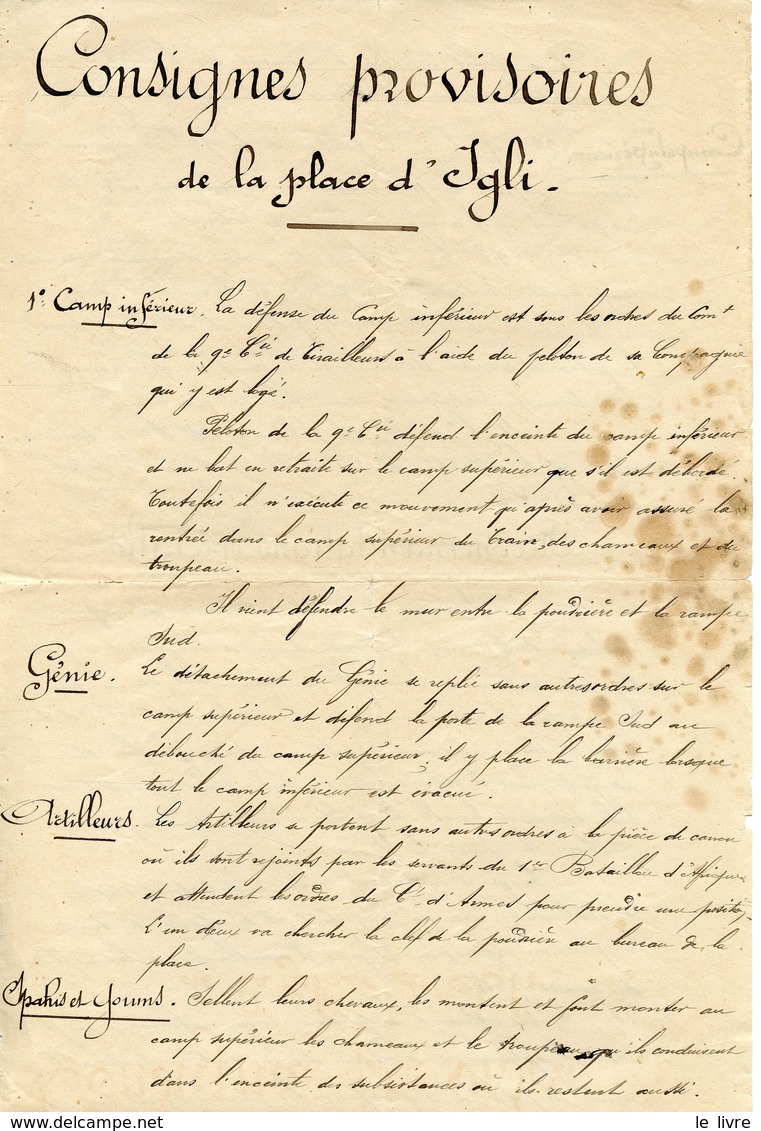 Consignes provisoires
de la place d'Igli.
1º Camp inférieur. La défense du Camp inférieur est sous les ordres du Comt
de la 9e Cie de Tirailleurs à l'aide du peloton de sa Compagnie
qui y est logé.
Peloton de la 9e Cie défend l'enceinte du camp inférieur
et ne bat en retraite sur le camp supérieur que s'il est débordé.
Toutefois il n'exécute ce mouvement qu'après avoir assuré la
rentrée dans le camp supérieur du Train, des chameaux et du
troupeau.
Il vient défendre le mur entre la poudrière et la rampe
Sud.
Génie. Le détachement du Génie se replie sans autres ordres sur le
camp supérieur et défend la porte de la rampe Sud au
débouché du camp supérieur, il y place la barrière lorsque
tout le camp inférieur est évacué.
Artilleurs. Les Artilleurs se portent sans autres ordres à la pièce de canon
où ils sont rejoints par les servants du 1er Bataillon d'Afrique
et attendent les ordres du Ct d'Armes pour prendre une position.
L'un d'eux va chercher la clef de la poudrière au bureau de la
place.
Spahis et Goums. Sellent leurs chevaux, les montent et font monter au
camp supérieur les chameaux et le troupeau qu'ils conduisent
dans l'enceinte des subsistances où ils restent aussi.
le livre
www.delcampe.net